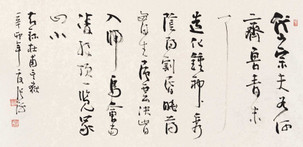 岱宗夫如何
齊魯青未
了
造化鍾神秀
陰陽割昏曉蕩
胸生層雲決眥
入歸鳥會當
凌絕頂一覽眾
山小